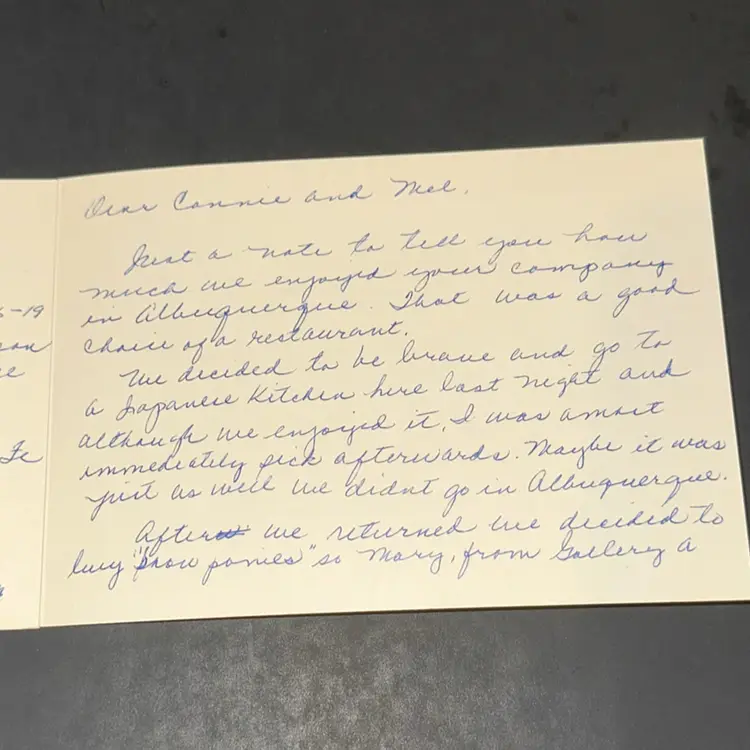 Dear Connie and Mel,
Just a note to tell you how
much we enjoyed your company
in Albuquerque. That was a good
choice of a restaurant.
We decided to be brave and go to
a Japanese Kitchen here last night and
although we enjoyed it, I was amost
immediately sick afterwards. Maybe it was
just as well we didnt go in Albuquerque.
After we returned we decided to
buy "Snow ponies" so Mary, from Gallery A
-19
Fe